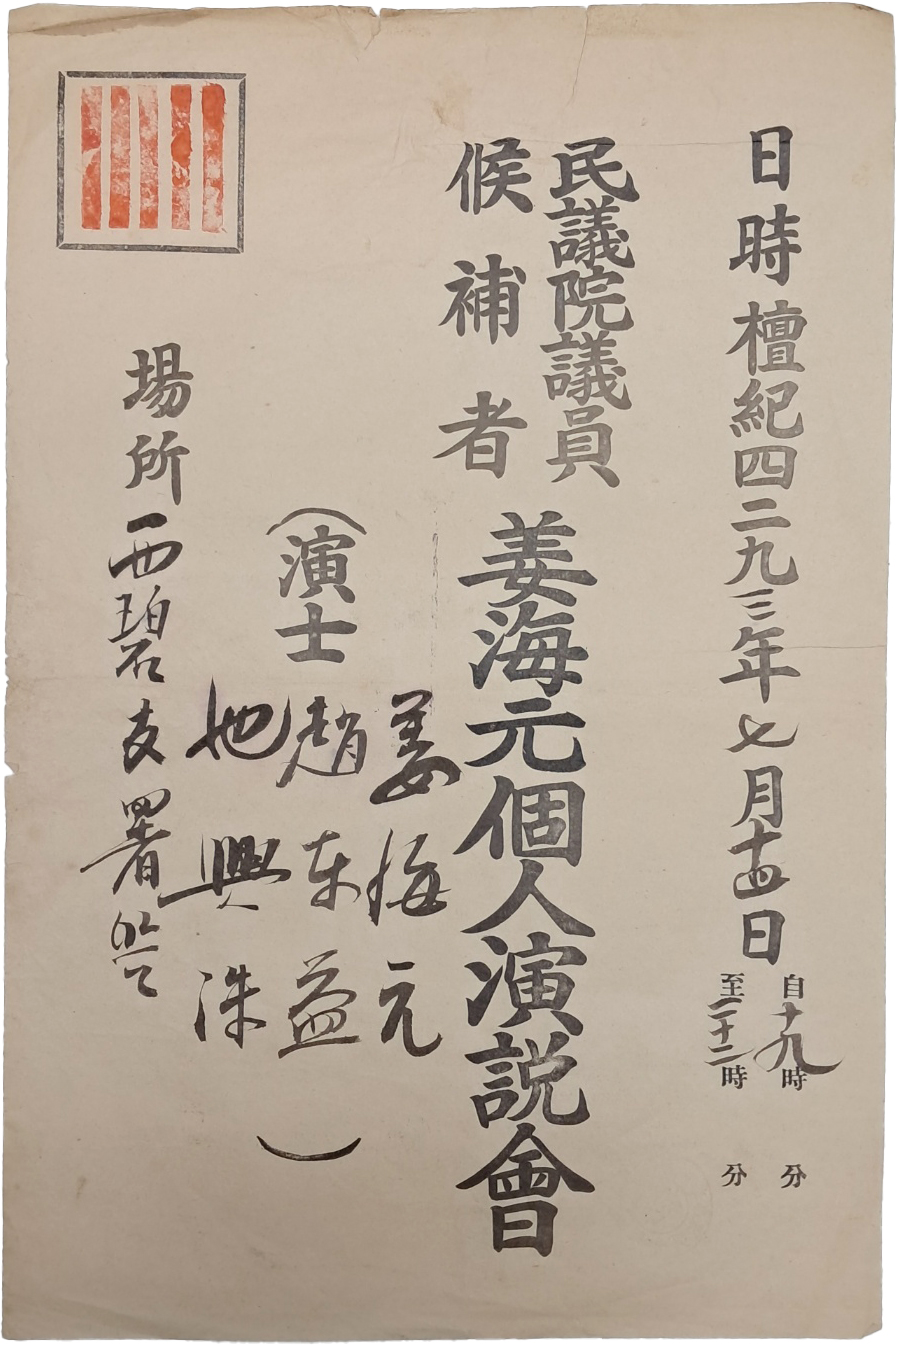 日時 檀紀四二九三年七月十四日
自十九時 分
至二十二時 分
民議院議員
候補者
姜海元個人演説會
(演士
姜海元
趙東益
池興洙)
場所 西碧支署앞